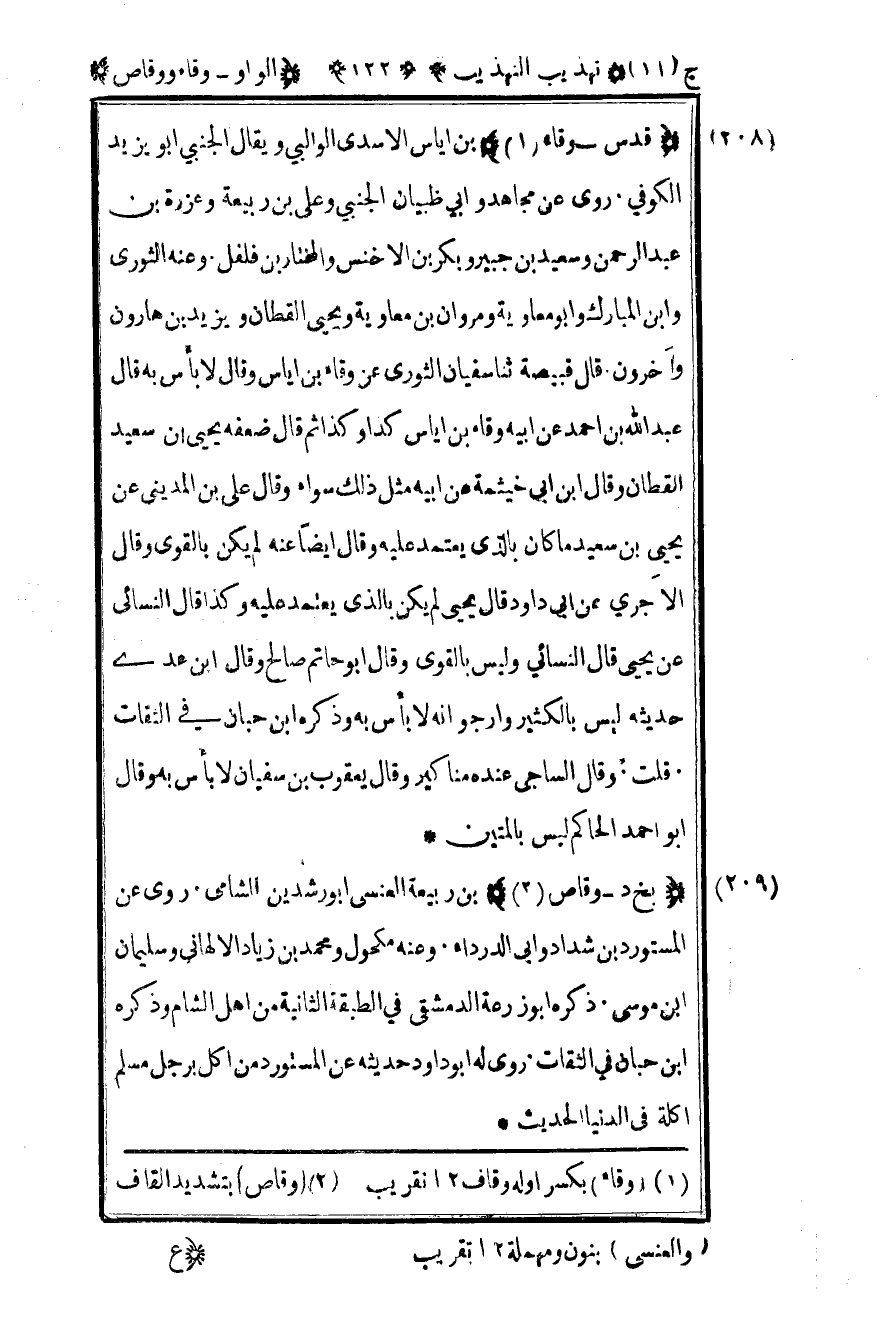 ج (١١) تهذيب التهذيب ١٢٢ الواو ـ وقاء ووقاص
(٢٠٨) قدس ـ وقاء (١) بن اياس الاسدى الوالبي ويقال الجنبي ابو يزيد
الكوفي . روى عن مجاهد وابي ظبيان الجنبي وعلى بن ربيعة وعزرة بن
عبد الرحمن وسعيد بن جبير وبكر بن الاخنس والمختار بن فلفل . وعنه الثورى
وابن المبارك وابو معاوية ومروان بن معاوية ويحيى القطان ويزيد بن هارون
وآخرون . قال قبيصة ثنا سفيان الثورى عن وقاء بن اياس وقال لا بأس به قال
عبد الله بن احمد عن ابيه وقاء بن اياس كذا وكذا ثم قال ضعفه يحيى بن سعيد
القطان وقال ابن ابي خيثمة عن ابيه مثل ذلك سواء وقال على بن المدينى عن
يحيى بن سعيد ما كان بالذى يعتمد عليه وقال ايضاً عنه لم يكن بالقوى وقال
الآجري عن ابي داود قال يحيى لم يكن بالذى يعتمد عليه وكذا قال النسائى
عن يحيى قال النسائي وليس بالقوى وقال ابو حاتم صالح وقال ابن عدے
حديثه ليس بالكثير وارجو انه لا بأس به وذكره ابن حبان في الثقات
. قلت : وقال الساجى عنده مناكير وقال يعقوب بن سفيان لا بأس به وقال
ابو احمد الحاكم ليس بالمتين *
(٢٠٩) بخ د ـ وقاص (٢) بن ربيعة العنسى ابو رشدين الشامى . روى عن
المستورد بن شداد وابي الدرداء . وعنه مكحول ومحمد بن زياد الالهانى وسليمان
ابن موسى . ذكره ابو زرعة الدمشقى في الطبقة الثانية من اهل الشام وذكره
ابن حبان في الثقات . روى له ابو داود حديثه عن المستورد من اكل برجل مسلم
اكلة فى الدنيا الحديث *
(١) (وقاء) بكسر اوله وقاف ١٢ تقريب (٢) (وقاص) بتشديد القاف
(والعنسى) بنون ومهملة ١٢ تقريب ع